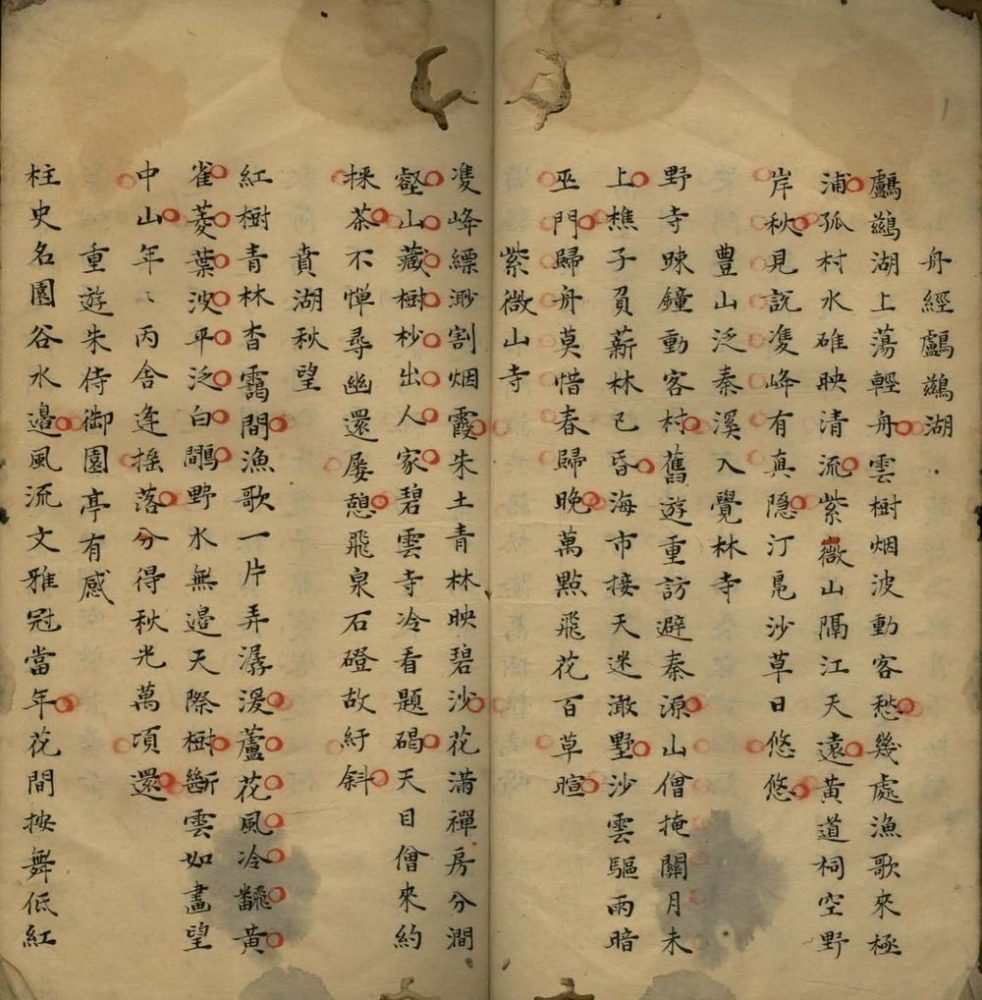 舟經鸕鷀湖
鸕鷀湖上蕩輕舟雲樹烟波動客愁幾處漁歌來極
浦孤村水碓映清流紫薇山隔江天遠黃道祠空野
岸秋見說凌峰有真隱汀鳧沙草日悠悠
豊山泛秦溪入覺林寺
野寺踈鐘動客村舊遊重訪避秦源山僧掩關月未
上樵子負薪林已昏海市接天迷澉墅沙雲驅雨暗
巫門歸舟莫惜春歸晚萬點飛花百草暄
紫微山寺
凌峰縹渺割烟霞朱土青林映碧沙花滿禪房分澗
壑山藏樹杪出人家碧雲寺冷看題碣天目僧來約
採茶不憚尋幽還屡憩飛泉石磴故紆斜
賁湖秋望
紅樹青林杳靄間漁歌一片弄潺湲蘆花風冷飜黃
雀菱葉波平泛白鷴野水無邉天際樹斷雲如畵望
中山年〻丙舍逢搖落分得秋光萬項還
重遊朱侍御園亭有感
柱史名園谷水邉風流文雅冠當年花間按舞低紅